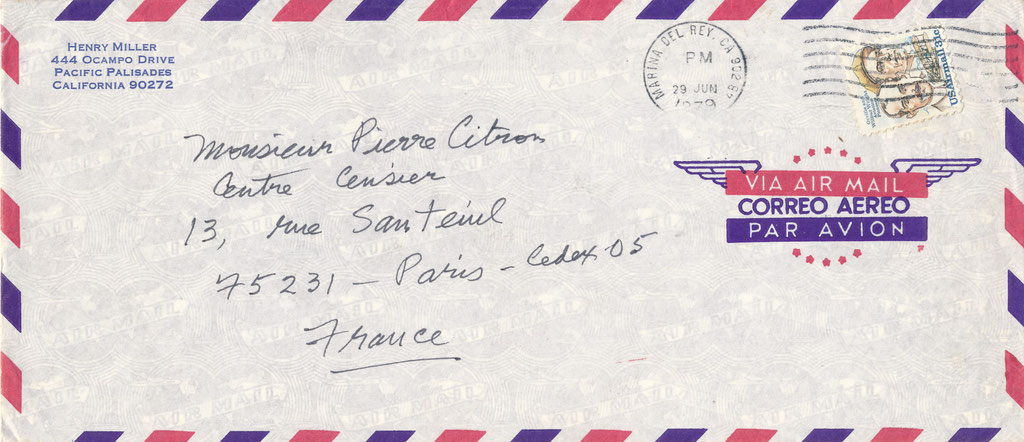 HENRY MILLER
444 OCAMPO DRIVE
PACIFIC PALISADES
CALIFORNIA 90272
MARINA DEL REY, CA 902
PM
29 JUN
1979
US Airmail 31c
VIA AIR MAIL
CORREO AEREO
PAR AVION
Monsieur Pierre Citron
Centre Censier
13, rue Santeuil
75231 – Paris – Cedex 05
France
AIR MAIL